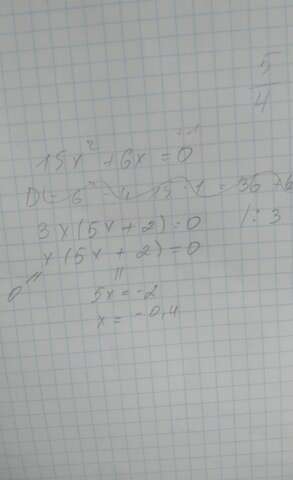 5
4
15x² + 6x = 0
3x(5x + 2) = 0 /: 3
x(5x + 2) = 0
0
5x = -2
x = -0,4